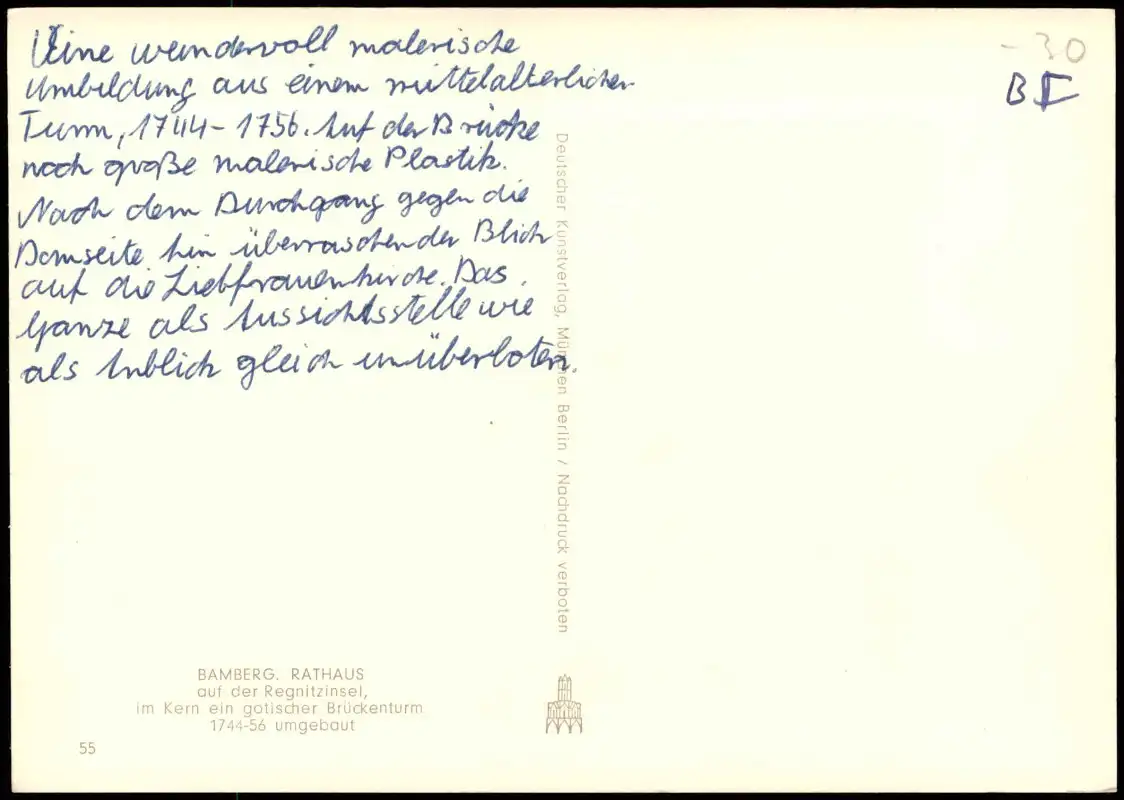 Eine wundervoll malerische
Umbildung aus einem mittelalterlichen
Turm, 1744-1756. Auf der Brücke
noch große malerische Plastik.
Nach dem Durchgang gegen die
Domseite hin überraschender Blick
auf die Liebfrauenkirche. Das
Ganze als Aussichtsstelle wie
als Anblick gleich unüberboten.
-30
Deutscher Kunstverlag, München Berlin / Nachdruck verboten
BAMBERG. RATHAUS
auf der Regnitzinsel,
im Kern ein gotischer Brückenturm
1744-56 umgebaut
55